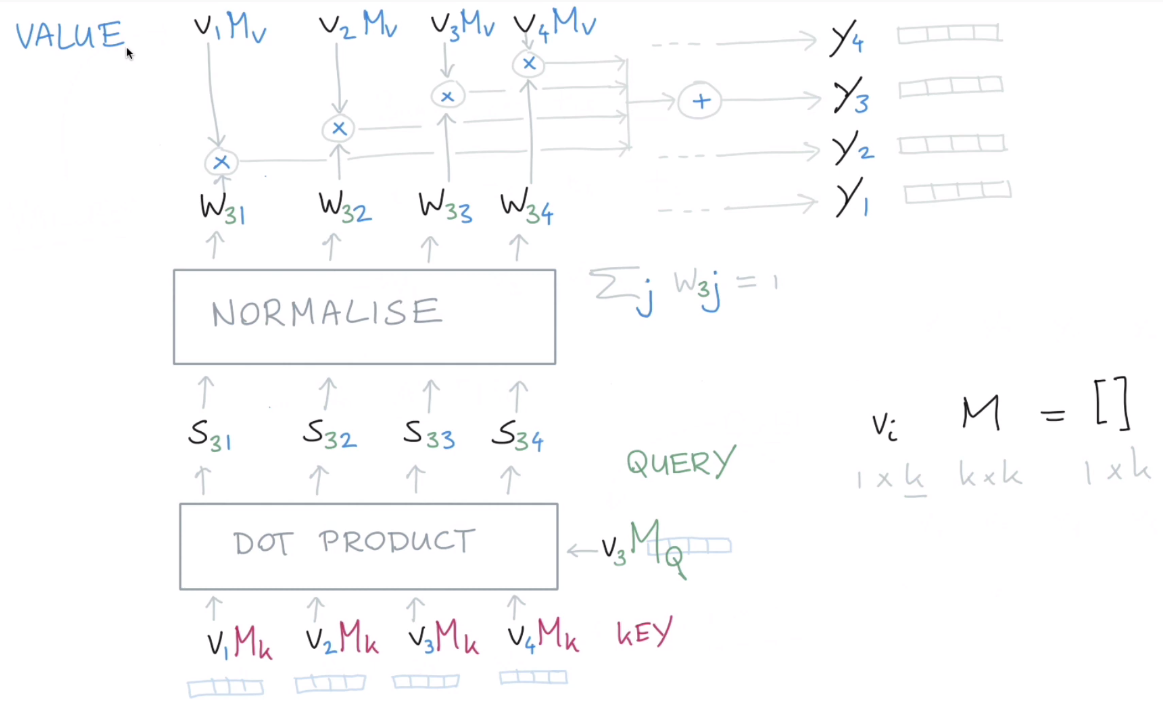 VALUE V₁Mᵥ V₂Mᵥ V₃Mᵥ V₄Mᵥ
× × × ×
+
y₄
y₃
y₂
y₁
W₃₁ W₃₂ W₃₃ W₃₄
NORMALISE
∑ⱼ W₃ⱼ = 1
S₃₁ S₃₂ S₃₃ S₃₄
vᵢ M = []
1 × k k × k 1 × k
QUERY
DOT PRODUCT
V₃M_Q
V₁Mₖ V₂Mₖ V₃Mₖ V₄Mₖ KEY